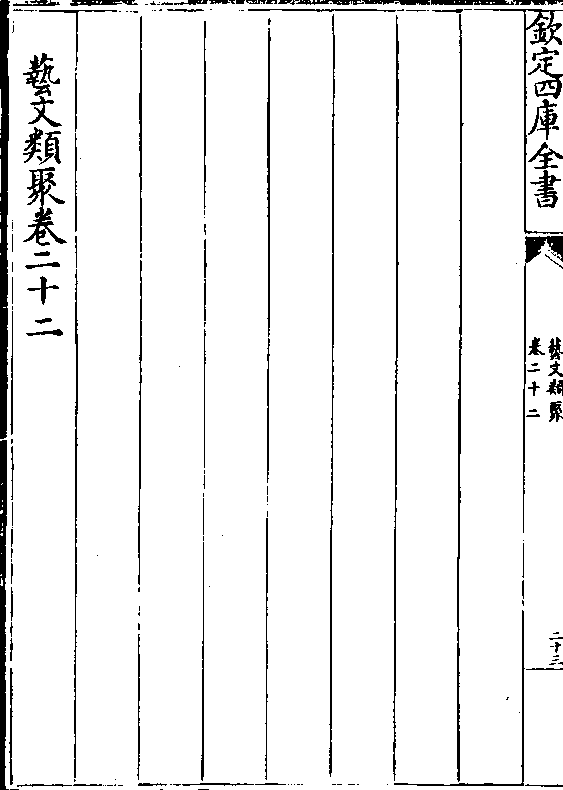 欽定四庫全書
藝文類聚
卷二十二
二十三
藝文類聚卷二十二